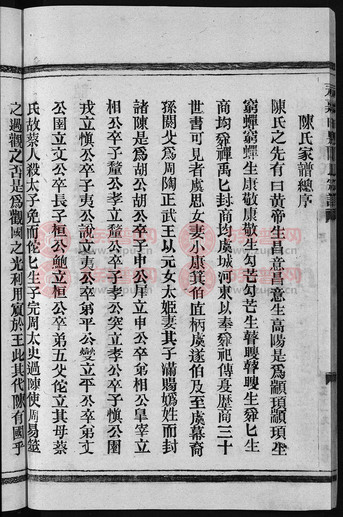 陳氏家譜總序
陳氏之先有曰黃帝生昌意昌意生高陽是爲顓頊顓頊生
窮蟬窮蟬生康敬康敬生勾芒勾芒生瞽瞍瞽瞍生舜匕生
商均舜禪禹匕封商均虞城河東以奉舜祀傳夏歷商三十
世書可見者虞思女妻小康箕伯直柄虞遂伯及至虞幕裔
孫閼父爲周陶正武王以元女太姬妻其子滿賜媯姓而封
諸陳是爲胡公胡公卒子申公犀立申公卒弟相公臯宰立
相公卒子釐公孝立釐公卒子孝公突立孝公卒子慎公圉
戎立慎公卒子夷公說立夷公卒弟平公燮立平公卒弟文
公圉立文公卒長子桓公鮑立桓公卒弟五父佗立其母蔡
氏故蔡人殺太子免而佗匕生子完周太史過陳使周易筮
之遇觀之否是爲觀國之光利用賓於王此其代陳有國乎